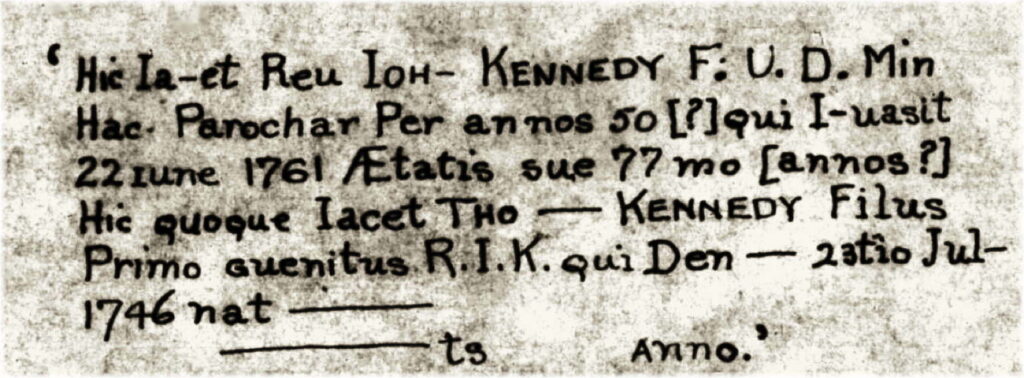 ‘Hic Ia-et Reu Ioh- KENNEDY F: U. D. Min
Hac· Parochar Per annos 50 [?] qui I-uasit
22 Iune 1761 Ætatis sue 77 mo [annos?]
Hic quoque Iacet Tho — KENNEDY Filus
Primo guenitus R.I.K. qui Den — 23tio Jul-
1746 nat —
— ts Anno.’